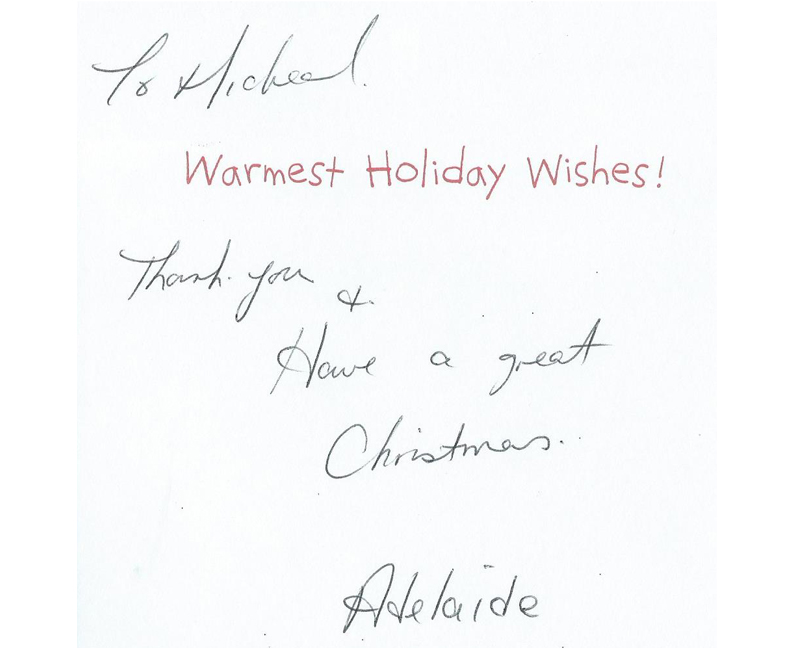 To Micheal.
Warmest Holiday Wishes!
Thank you
&.
Have a great
Christmas.
Adelaide